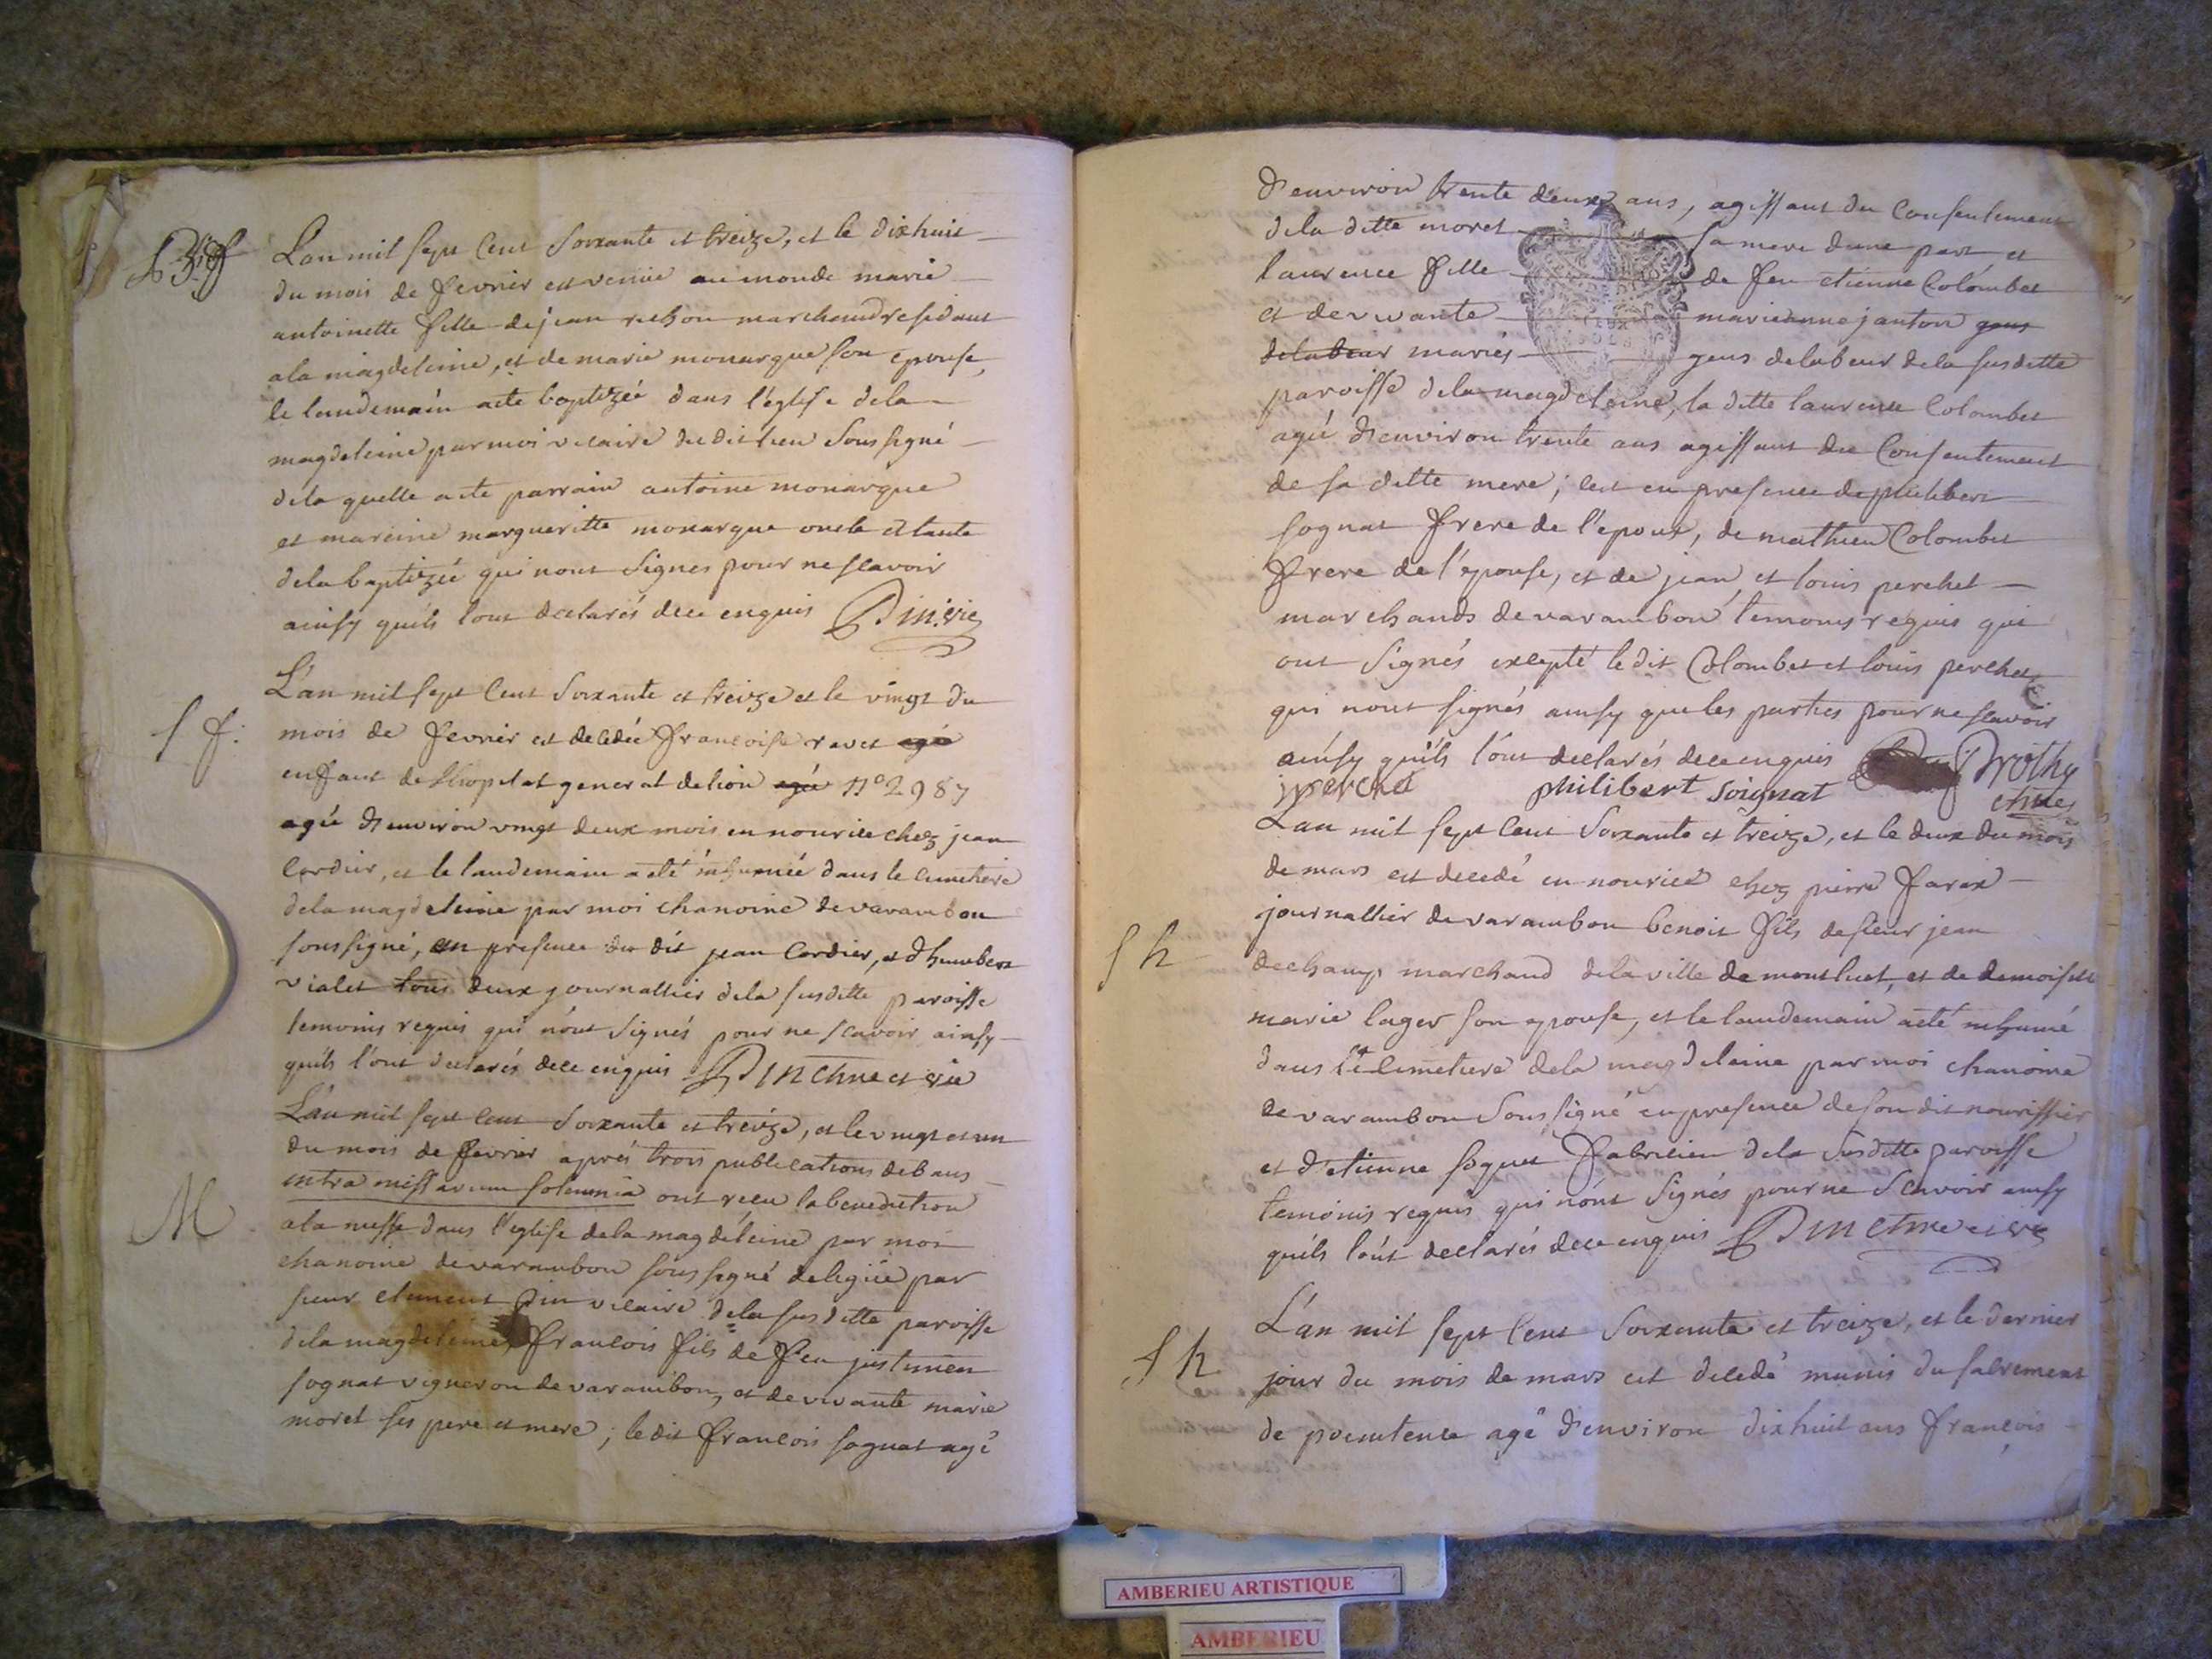 L'an mil sept cent soixante et treize, et le dixhuit
du mois de fevrier est venue au monde marie
antoinette fille de jean richon marchand residant
a la magdeleine, et de marie monarque son epouse,
le landemain a ete baptizée dans l'eglise de la
magdeleine par moi vicaire du dit lieu soussigné
de la quelle a ete parrain antoine monarque
et mareine margueritte monarque oncle et tante
de la baptizée qui n'ont signés pour ne scavoir
ainsy qu'ils l'ont declarés de ce enquis Din vic
L'an mil sept cent soixante et treize et le vingt du
S f.
mois de fevrier est decedée francoise ravet agée
enfant de l'hopital general de lion agée n° 2987
agée d'environ vingt deux mois en nourice chez jean
Cordier, et le landemain a eté inhumée dans le cimetiere
de la magdeleine par moi chanoine de varambon
soussigné, en presence du dit jean Cordier, et d'humbert
vialet tous deux journallier de la susditte paroisse
temoins requis qui n'ont signés pour ne scavoir ainsy
qu'ils l'ont declarés de ce enquis Din chne et vic
L'an mil sept cent soixante et treize, et le vingt et un
du mois de fevrier aprés trois publications de bans
M
intra missarum solemnia ont reçu la benediction
a la messe dans l'eglise de la magdeleine par moi
chanoine de varambon soussigné deligué par
sieur clement Din vicaire de la susditte paroisse
de la magdeleine francois fils de feu justinien
sognat vigneron de varambon, et de vivante marie
moret ses pere et mere; le dit francois sognat agé
d'environ trente deux ans, agissant du consentement
de la ditte moret sa mere d'une part et
laurence fille de feu etienne Colombet
et de vivante marieanne janton gens
de labeur mariés gens de labeur de la susditte
paroisse de la magdeleine, la ditte laurence Colombet
agée d'environ trente ans agissant du consentement
de sa ditte mere; c'est en presence de philibert
sognat frere de l'epoux, de mathieu Colombet
frere de l'epouse, et de jean, et louis perchet
marchands de varambon temoins requis qui
ont signés excepté le dit Colombet et louis perchet
qui n'ont signés ainsy que les parties pour ne scavoir
ainsy qu'ils l'ont declarés de ce enquis Brothy
j perche philibert soignat chne
L'an mil sept cent soixante et treize, et le deux du mois
de mars est decedé en nourice chez pierre farax
journallier de varambon benoit fils de sieur jean
S h
dechamp marchand de la ville de montluet, et de demoiselle
marie lager son epouse, et le landemain a eté inhumé
dans le cimetiere de la magdeleine par moi chanoine
de varambon soussigné en presence de son dit nourissier
et d'etienne soguet fabricien de la susditte paroisse
temoins requis qui n'ont signés pour ne scavoir ainsy
qu'ils l'ont declarés de ce enquis Din chne et vic
L'an mil sept cent soixante et treize, et le dernier
S h
jour du mois de mars est decedé munis du sacrement
de poenitence agé d'environ dixhuit ans francois
AMBERIEU ARTISTIQUE
AMBERIEU